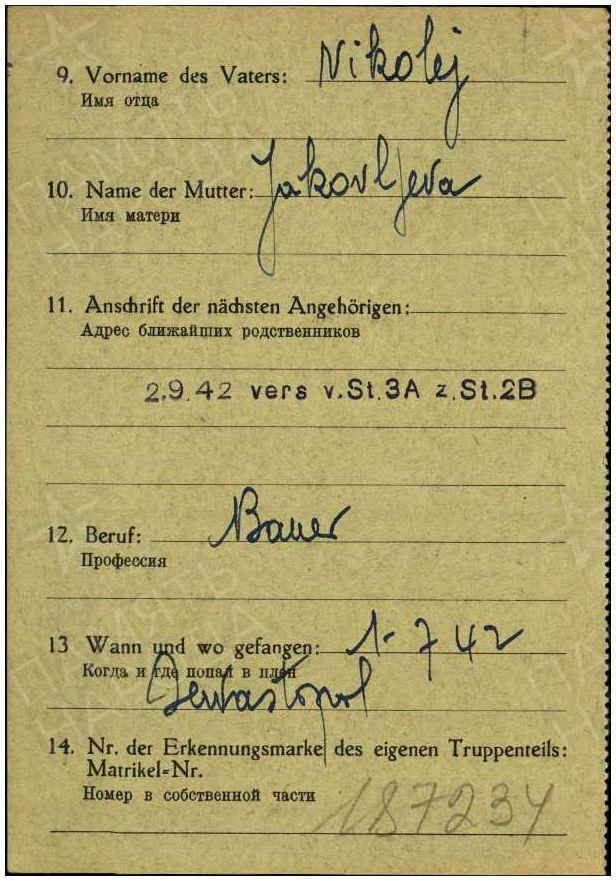 9. Vorname des Vaters: Nikolej
Имя отца
10. Name der Mutter: Jakovljeva
Имя матери
11. Anschrift der nächsten Angehörigen:
Адрес ближайших родственников
2.9.42 vers v.St.3A z.St.2B
12. Beruf: Bauer
Профессия
13 Wann und wo gefangen: 1-7 42
Когда и где попал в плен
Sewastopol
14. Nr. der Erkennungsmarke des eigenen Truppenteils:
Matrikel-Nr.
Номер в собственной части
187234
ПАМЯТЬ
НАРОДА